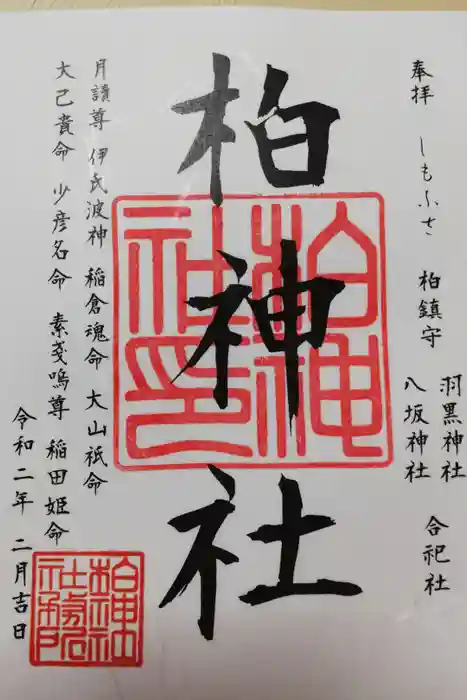 奉拝 しもふさ 柏鎮守
羽黒神社
八坂神社 合祀社
柏神社
柏神社印
月讀尊 伊氐波神 稲倉魂命 大山祇命
大己貴命 少彦名命 素戔嗚尊 稲田姫命
令和二年 二月吉日
柏神社社務所印